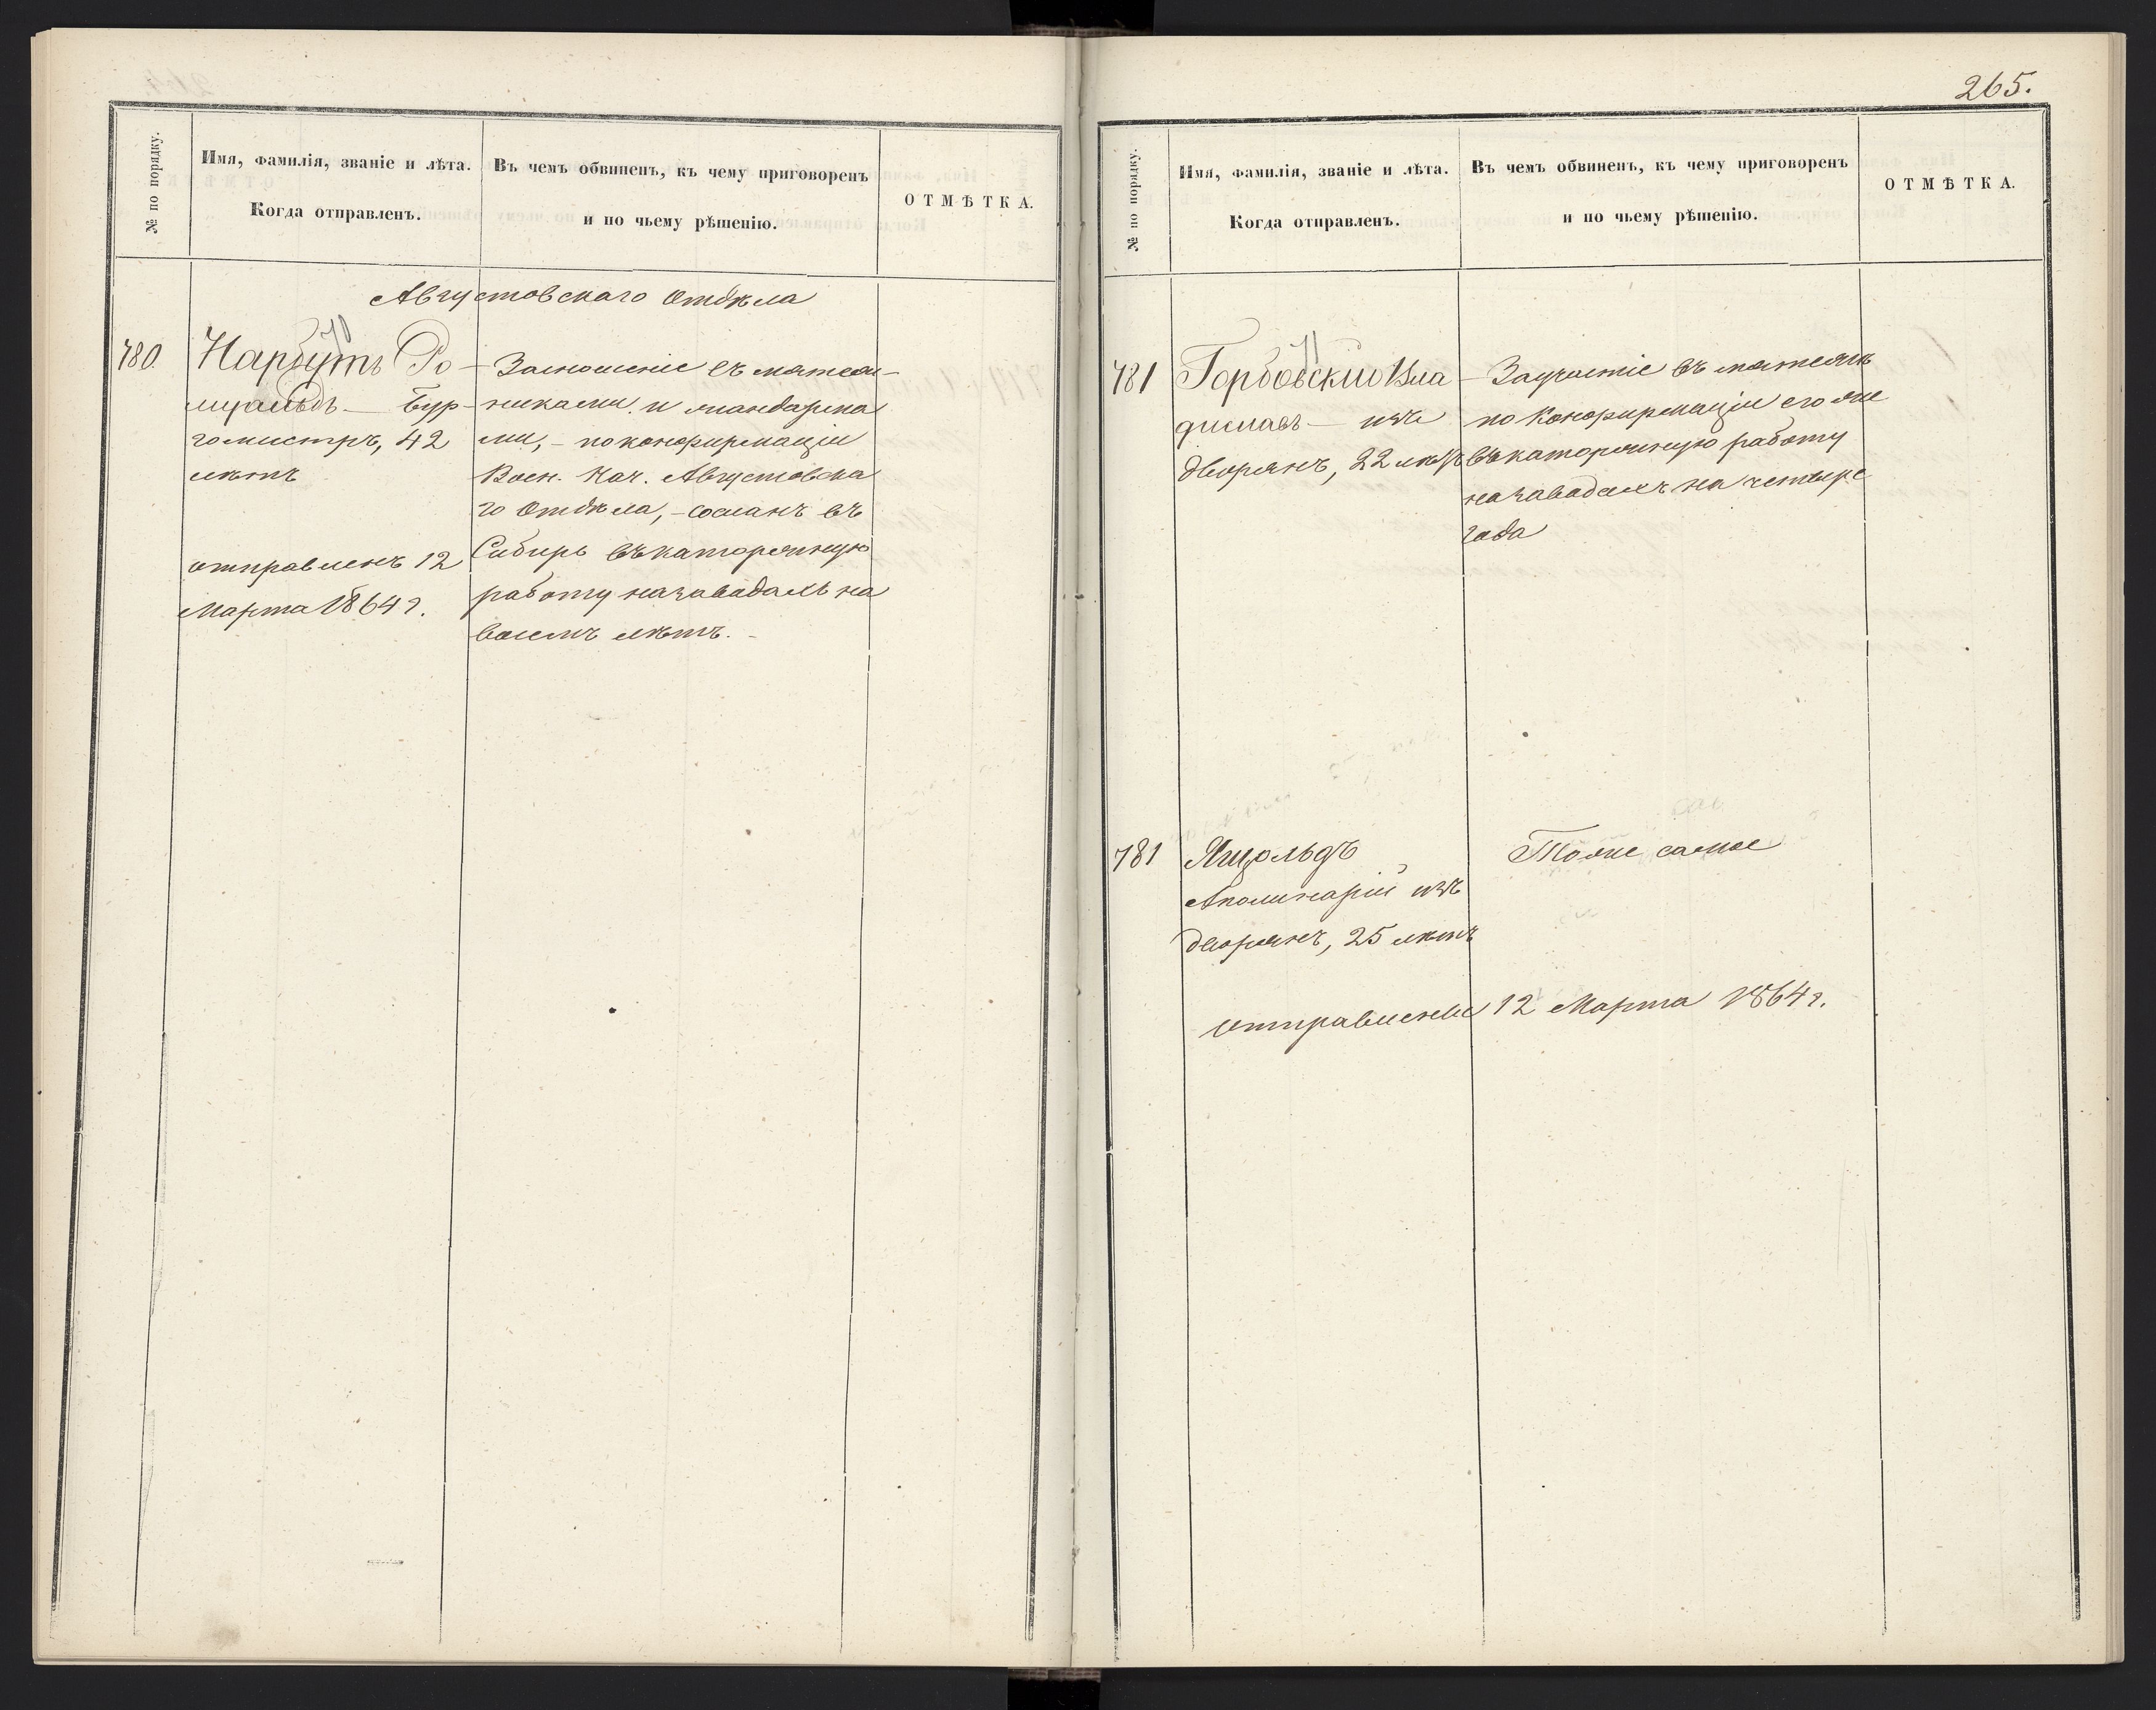 № по порядку.
Имя, фамилія, званіе и лѣта.
Когда отправленъ.
Въ чемъ обвиненъ, къ чему приговоренъ
и по чьему рѣшенію.
ОТМѢТКА.
Августовскаго Отдѣла
780.
Нарбутъ Ро-
муальдъ — Бур-
гомистръ, 42
лѣтъ
отправленъ 12
Марта 1864 г.
За сношеніе съ мятеж-
никами и жандарма
ми, - по конфирмаціи
Воен. Нач. Августовска
го Отдѣла, - сосланъ въ
Сибирь въ каторжную
работу на заводахъ на
восемь лѣтъ. -
265.
№ по порядку.
Имя, фамилія, званіе и лѣта.
Когда отправленъ.
Въ чемъ обвиненъ, къ чему приговоренъ
и по чьему рѣшенію.
ОТМѢТКА.
781
Горбовскій Вла
диславъ — изъ
дворянъ, 22 лѣтъ
— За участіе въ мятежѣ
по Конфирмаціи его же
въ каторжную работу
на заводахъ на четыре
года
781
Ящольдъ
Аполинарій изъ
дворянъ, 25 лѣтъ
Тоже самое
отправлены 12 Марта 1864 г.